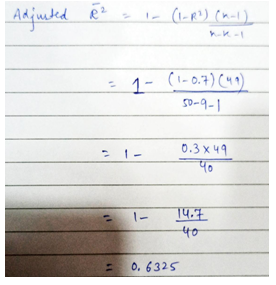 Adjusted R̄² = 1- (1-R²) (n-1) / n-k-1
= 1- (1-0.7) (49) / 50-9-1
= 1- 0.3 x 49 / 40
= 1- 14.7 / 40
= 0.6325